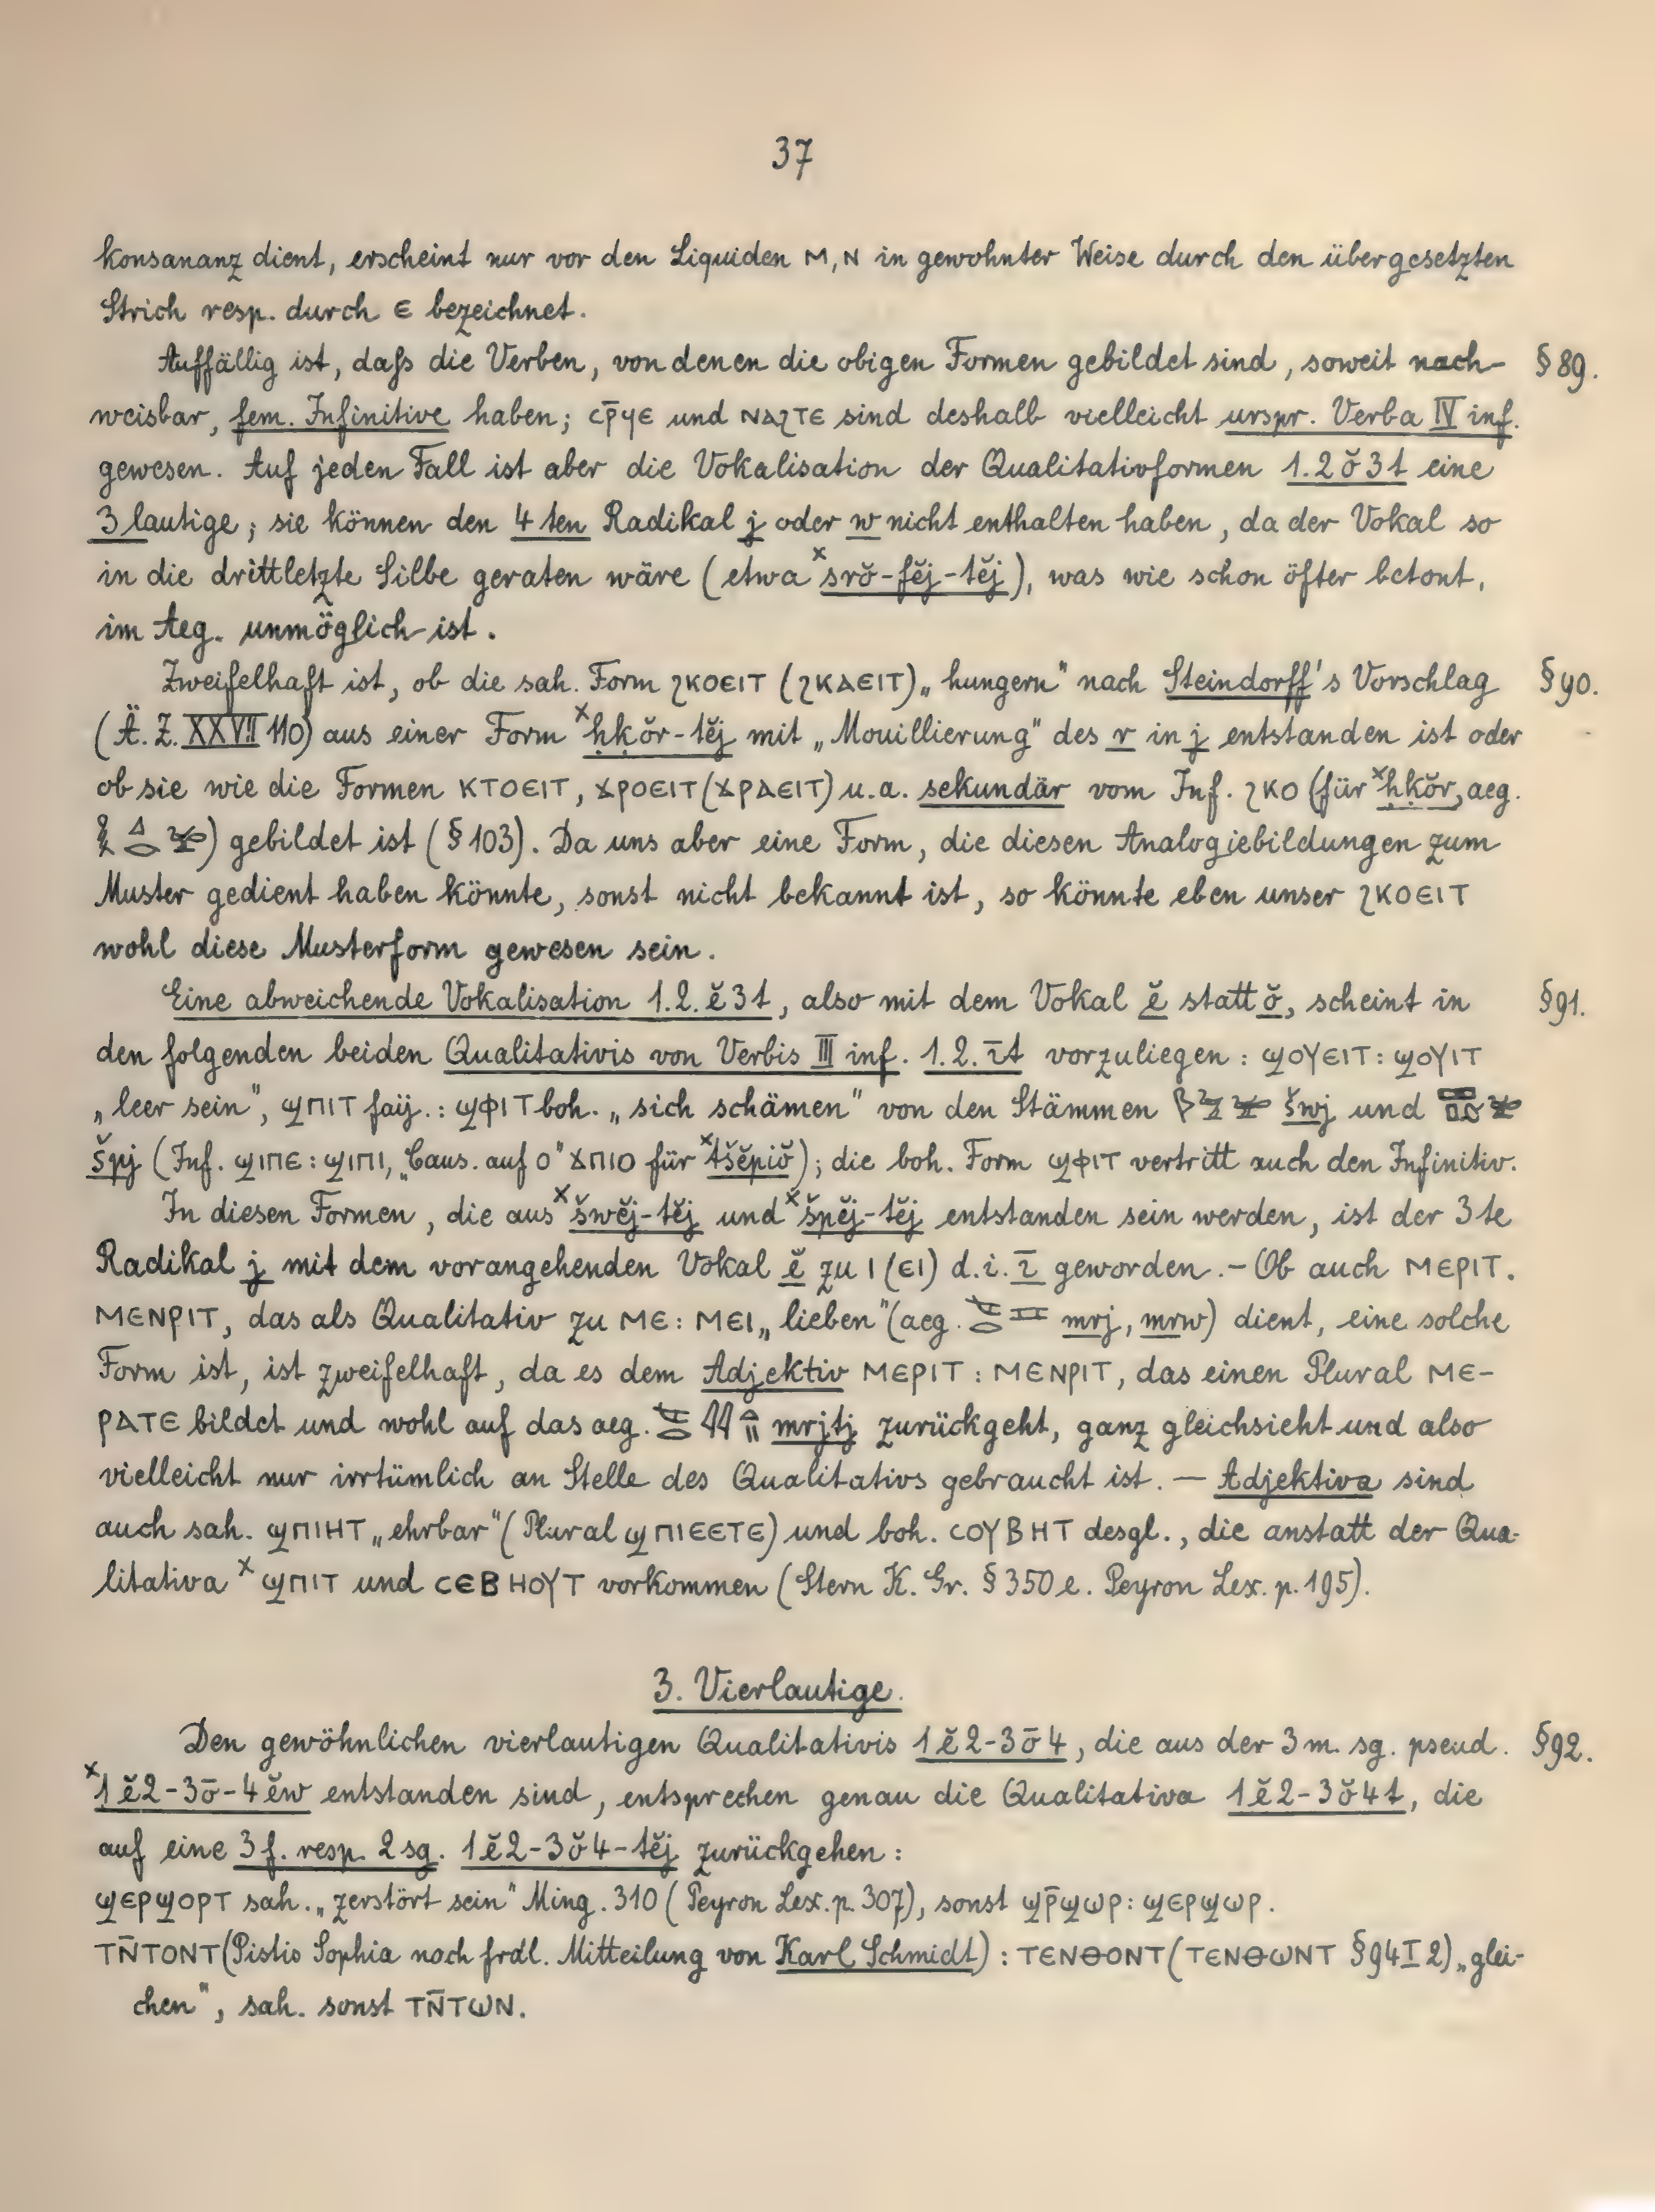 37
konsananz dient, erscheint nur vor den Liquiden ⲙ, ⲛ in gewohnter Weise durch den übergesetzten
Strich resp. durch ⲉ bezeichnet.
Auffällig ist, daſs die Verben, von denen die obigen Formen gebildet sind, soweit nach- § 89.
weisbar, fem. Infinitive haben; ⲥⲣ̄ϥⲉ und ⲛⲁϩⲧⲉ sind deshalb vielleicht urspr. Verba IV inf.
gewesen. Auf jeden Fall ist aber die Vokalisation der Qualitativformen 1.2ŏ3t eine
3 lautige; sie können den 4ten Radikal j oder w nicht enthalten haben, da der Vokal so
in die drittletzte Silbe geraten wäre (etwa ˣsrŏ-fĕj-tĕj), was wie schon öfter betont,
im Aeg. unmöglich ist.
Zweifelhaft ist, ob die sah. Form ϩⲕⲟⲉⲓⲧ (ϩⲕⲁⲉⲓⲧ) „hungern" nach Steindorff's Vorschlag § 90.
(Ä. Z. XXVII 110) aus einer Form ˣḥḳŏr-tĕj mit „Mouillierung" des r in j entstanden ist oder
ob sie wie die Formen ⲕⲧⲟⲉⲓⲧ, ϫⲣⲟⲉⲓⲧ (ϫⲣⲁⲉⲓⲧ) u.a. sekundär vom Inf. ϩⲕⲟ (für ˣḥḳŏr, aeg.
) gebildet ist (§ 103). Da uns aber eine Form, die diesen Analogiebildungen zum
Muster gedient haben könnte, sonst nicht bekannt ist, so könnte eben unser ϩⲕⲟⲉⲓⲧ
wohl diese Musterform gewesen sein.
Eine abweichende Vokalisation 1.2.ĕ3t, also mit dem Vokal ĕ statt ŏ, scheint in § 91.
den folgenden beiden Qualitativis von Verbis III inf. 1.2.īt vorzuliegen: ϣⲟⲩⲉⲓⲧ: ϣⲟⲩⲓⲧ
„leer sein", ϣⲡⲓⲧ faij.: ϣⲫⲓⲧ boh. „sich schämen" von den Stämmen šwj und
špj (Inf. ϣⲓⲡⲉ: ϣⲓⲡⲓ, „Caus. auf o" ϫⲡⲓⲟ für ˣtšĕpiŏ); die boh. Form ϣⲫⲓⲧ vertritt auch den Infinitiv.
In diesen Formen, die aus ˣšwĕj-tĕj und ˣšpĕj-tĕj entstanden sein werden, ist der 3te
Radikal j mit dem vorangehenden Vokal ĕ zu ⲓ (ⲉⲓ) d.i. ī geworden. – Ob auch ⲙⲉⲣⲓⲧ.
ⲙⲉⲛⲣⲓⲧ, das als Qualitativ zu ⲙⲉ: ⲙⲉⲓ „lieben" (aeg. mrj, mrw) dient, eine solche
Form ist, ist zweifelhaft, da es dem Adjektiv ⲙⲉⲣⲓⲧ : ⲙⲉⲛⲣⲓⲧ, das einen Plural ⲙⲉ-
ⲣⲁⲧⲉ bildet und wohl auf das aeg. mrjtj zurückgeht, ganz gleichsieht und also
vielleicht nur irrtümlich an Stelle des Qualitativs gebraucht ist. — Adjektiva sind
auch sah. ϣⲡⲓⲏⲧ „ehrbar" (Plural ϣⲡⲓⲉⲉⲧⲉ) und boh. ⲥⲟⲩⲃⲏⲧ desgl., die anstatt der Qua-
litativa ˣϣⲡⲓⲧ und ⲥⲉⲃⲏⲟⲩⲧ vorkommen (Stern K. Gr. § 350 e. Peyron Lex. p. 195).
3. Vierlautige.
Den gewöhnlichen vierlautigen Qualitativis 1ĕ2-3ō4, die aus der 3 m. sg. pseud. § 92.
ˣ1ĕ2-3ō-4ĕw entstanden sind, entsprechen genau die Qualitativa 1ĕ2-3ŏ4t, die
auf eine 3 f. resp. 2 sg. 1ĕ2-3ŏ4-tĕj zurückgehen:
ϣⲉⲣϣⲟⲣⲧ sah. „zerstört sein" Ming. 310 (Peyron Lex. p. 307), sonst ϣⲣ̄ϣⲱⲣ: ϣⲉⲣϣⲱⲣ.
ⲧⲛ̄ⲧⲟⲛⲧ (Pistis Sophia nach frdl. Mitteilung von Karl Schmidt) : ⲧⲉⲛⲑⲟⲛⲧ (ⲧⲉⲛⲑⲱⲛⲧ § 94 I 2) „glei-
chen", sah. sonst ⲧⲛ̄ⲧⲱⲛ.